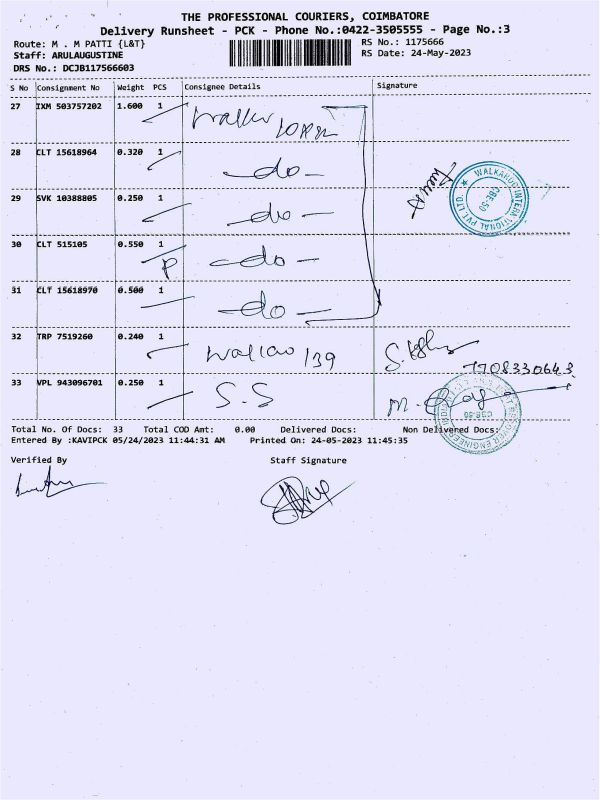 THE PROFESSIONAL COURIERS, COIMBATORE
Delivery Runsheet - PCK - Phone No.:0422-3505555 - Page No.:3
Route: M . M PATTI {L&T}
RS No.: 1175666
Staff: ARULAUGUSTINE
RS Date: 24-May-2023
DRS No.: DCJB117566603
S No Consignment No Weight PCS Consignee Details Signature
27 IXM 503757202 1.600 1
28 CLT 15618964 0.320 1 -do-
29 SVK 10388805 0.250 1 -do-
30 CLT 515105 0.550 1 -do-
P
31 CLT 15618970 0.500 1 -do-
32 TRP 7519260 0.240 1 139
33 VPL 943096701 0.250 1 S.S M.
WALKAROO INTERNATIONAL PVT LTD
CBE-50
Total No. Of Docs: 33 Total COD Amt: 0.00 Delivered Docs: Non Delivered Docs:
Entered By :KAVIPCK 05/24/2023 11:44:31 AM Printed On: 24-05-2023 11:45:35
Verified By Staff Signature